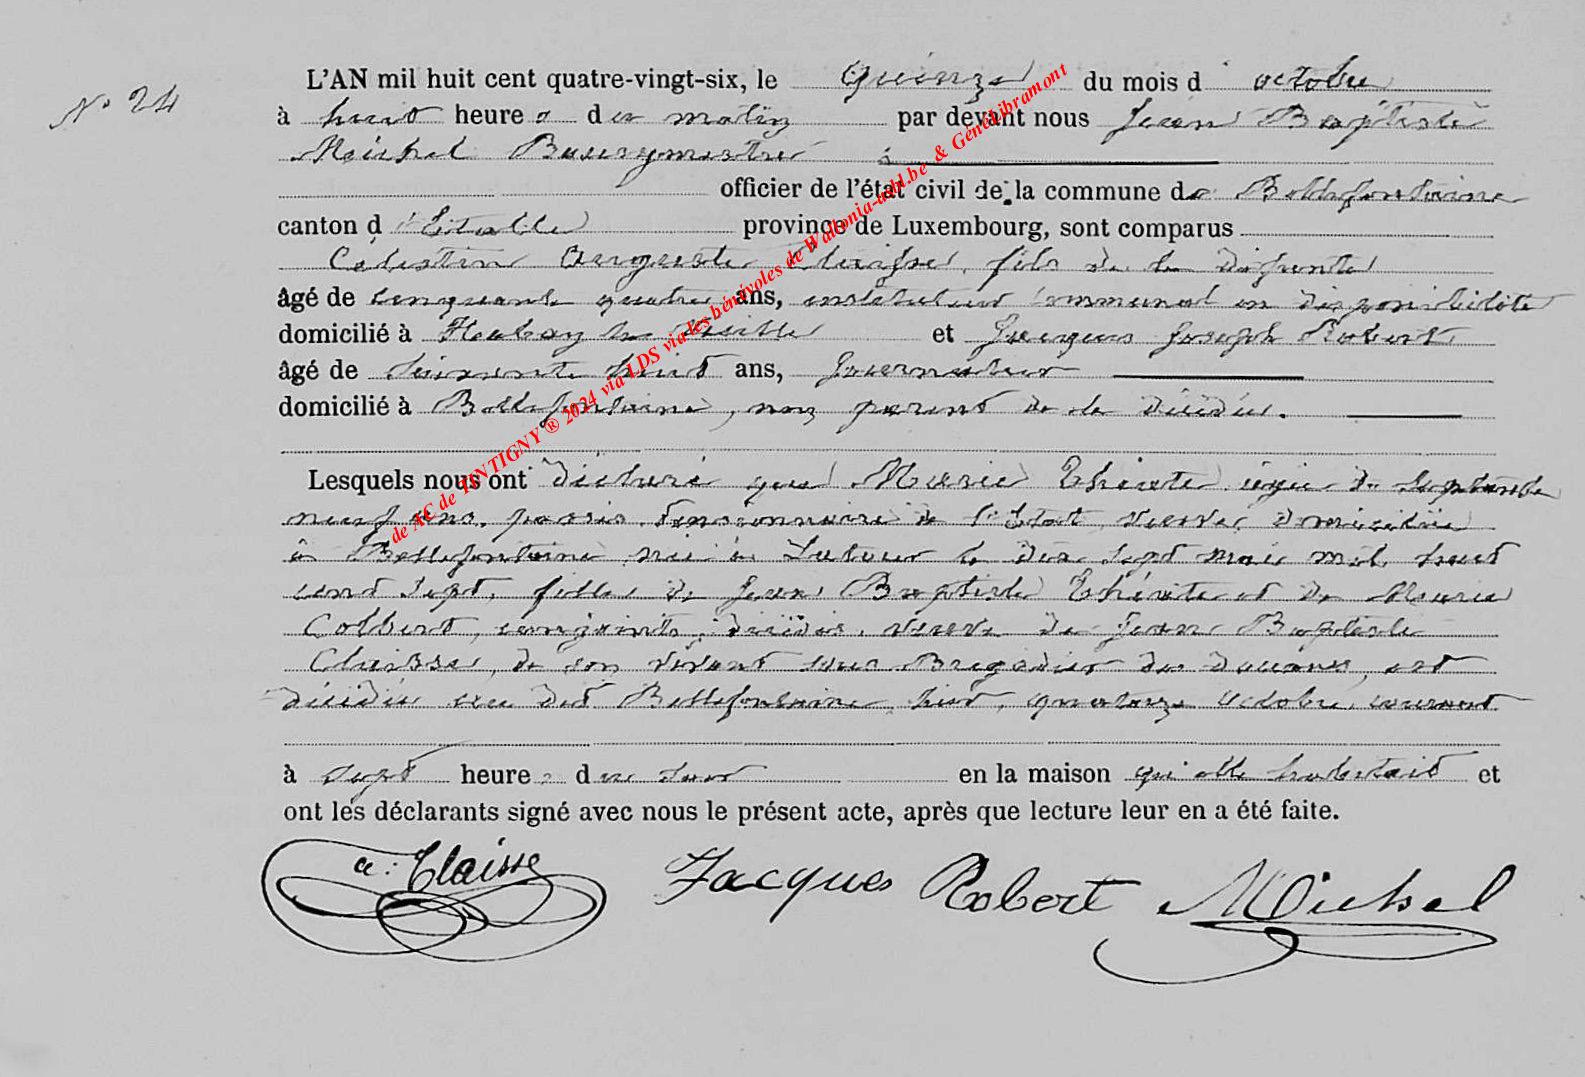 N° 24
L'AN mil huit cent quatre-vingt-six, le quinze du mois d'octobre
à huit heures du matin par devant nous Jean Baptiste
Michel Bourgmestre
officier de l'état civil de la commune de Bellefontaine
canton d'Etalle province de Luxembourg, sont comparus
Celestin Auguste Claisse, fils de la défunte
âgé de cinquante quatre ans, instituteur communal en disponibilité
domicilié à Habay la Vieille et Jacques Joseph Robert
âgé de soixante huit ans, Journalier
domicilié à Bellefontaine, non parent de la décédée.
Lesquels nous ont déclaré que Marie Thérète agée de septante
neuf ans, passés, pensionnaire de l'Etat veuve, domiciliée
à Bellefontaine née à Latour le dix sept mai mil huit
cent sept, fille de Jean Baptiste Thérète et de Marie
Colbert, conjoints, décédés, veuve de Jean Baptiste
Claisse, de son vivant sous Brigadier des douanes, est
décédée au dit Bellefontaine, hier, quatorze octobre, courant
à sept heures du soir en la maison qu'elle habitait et
ont les déclarants signé avec nous le présent acte, après que lecture leur en a été faite.
a: Claisse Jacques Robert Michel
de AC de TINTIGNY ® 2024 via LDS via les bénévoles de Wallonia-asbl.be & Généalibramont